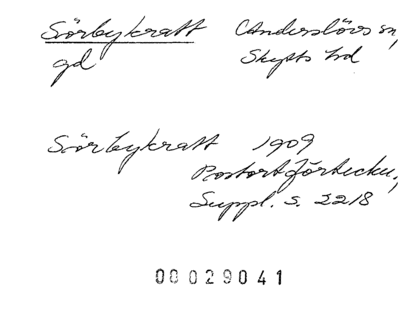 Sörbykratt Anderslövs sn,
gd Skytts hd
Sörbykratt 1909
Postortförteckn.,
Suppl. s. 2218
00029041